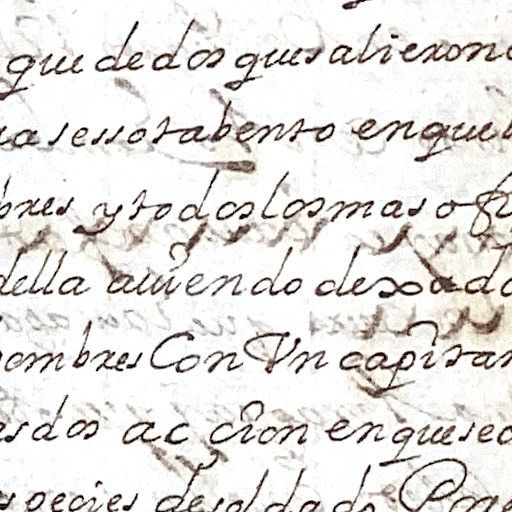 que de dos que salieron
sessotabento en que
bres y todos los mas ofi
della aviendo dexado
hombres Con Vn capitan
dos accion en que se
especies de soldado